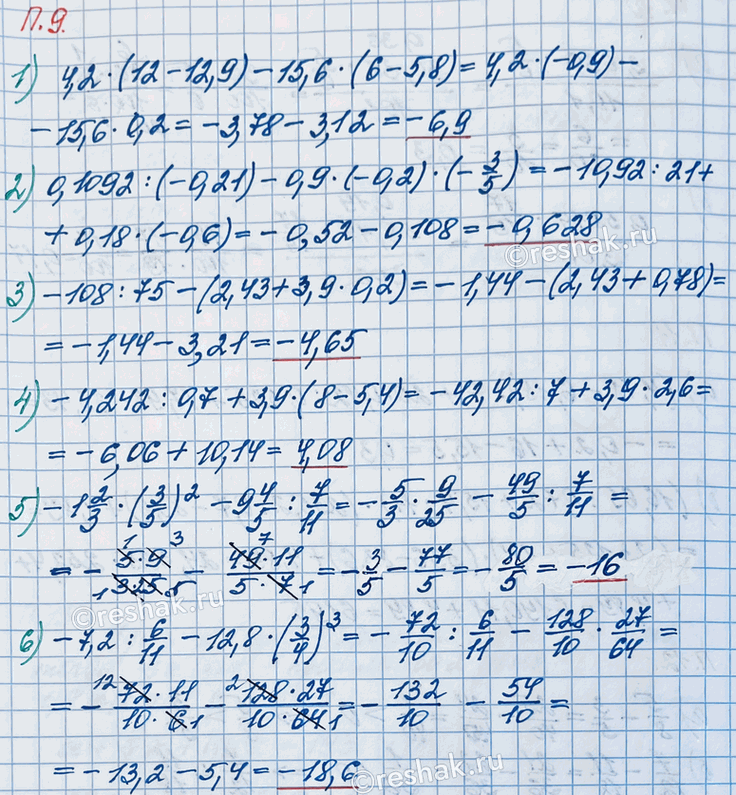 П.9.
1) 4,2·(12-12,9)-15,6·(6-5,8)=4,2·(-0,9)-
-15,6·0,2=-3,78-3,12=-6,9
2) 0,1092:(-0,21)-0,9·(-0,2)·(-3/5)=-10,92:21+
+0,18·(-0,6)=-0,52-0,108=-0,628
3) -108:75-(2,43+3,9·0,2)=-1,44-(2,43+0,78)=
=-1,44-3,21=-4,65
4) -4,242:0,7+3,9·(8-5,4)=-42,42:7+3,9·2,6=
=-6,06+10,14=4,08
5) -1 2/3·(3/5)²-9 4/5:7/11=-5/3·9/25-49/5:7/11=
=-(5·9)/(3·25)-(49·11)/(5·7)=-3/5-77/5=-80/5=-16
6) -7,2:6/11-12,8·(3/4)³=-72/10:6/11-128/10·27/64=
=-(72·11)/(10·6)-(128·27)/(10·64)=-132/10-54/10=
=-13,2-5,4=-18,6
©reshak.ru
©reshak.ru
©reshak.ru